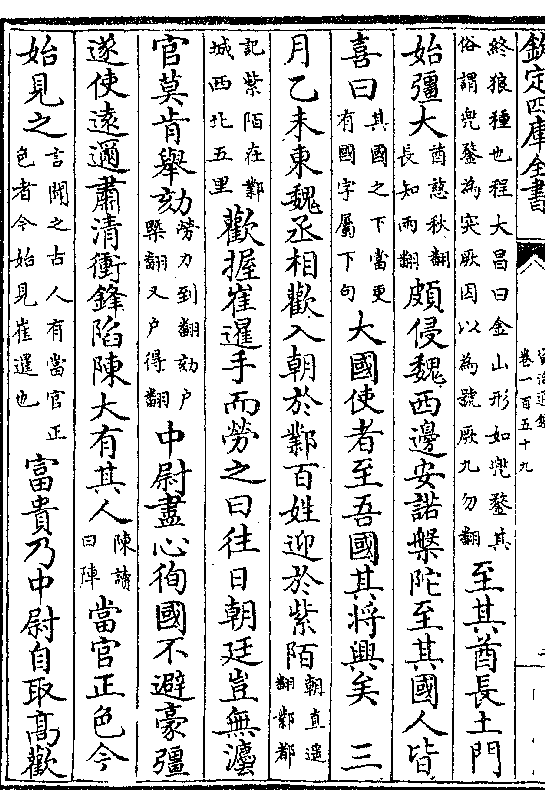 欽定四庫全書
資治通鑑
卷一百五十九
終狼種也程大昌曰金山形如兜鍪其俗謂兜鍪為突厥因以為號厥九勿翻至其酋長土門
始彊大酋慈秋翻長知兩翻頗侵魏西邊安諾槃陀至其國人皆
喜曰其國之下當更有國字屬下句大國使者至吾國其将興矣 三
月乙未東魏丞相歡入朝於鄴百姓迎於紫陌朝直遥翻鄴都
記紫陌在鄴城西北五里歡握崔暹手而勞之曰往日朝廷豈無灋
官莫肯舉劾勞力到翻劾户槩翻又户得翻中尉盡心徇國不避豪彊
遂使遠邇肅清衝鋒陷陳大有其人陳讀曰陣當官正色今
始見之言聞之古人有當官正色者今始見崔暹也富貴乃中尉自取髙歡